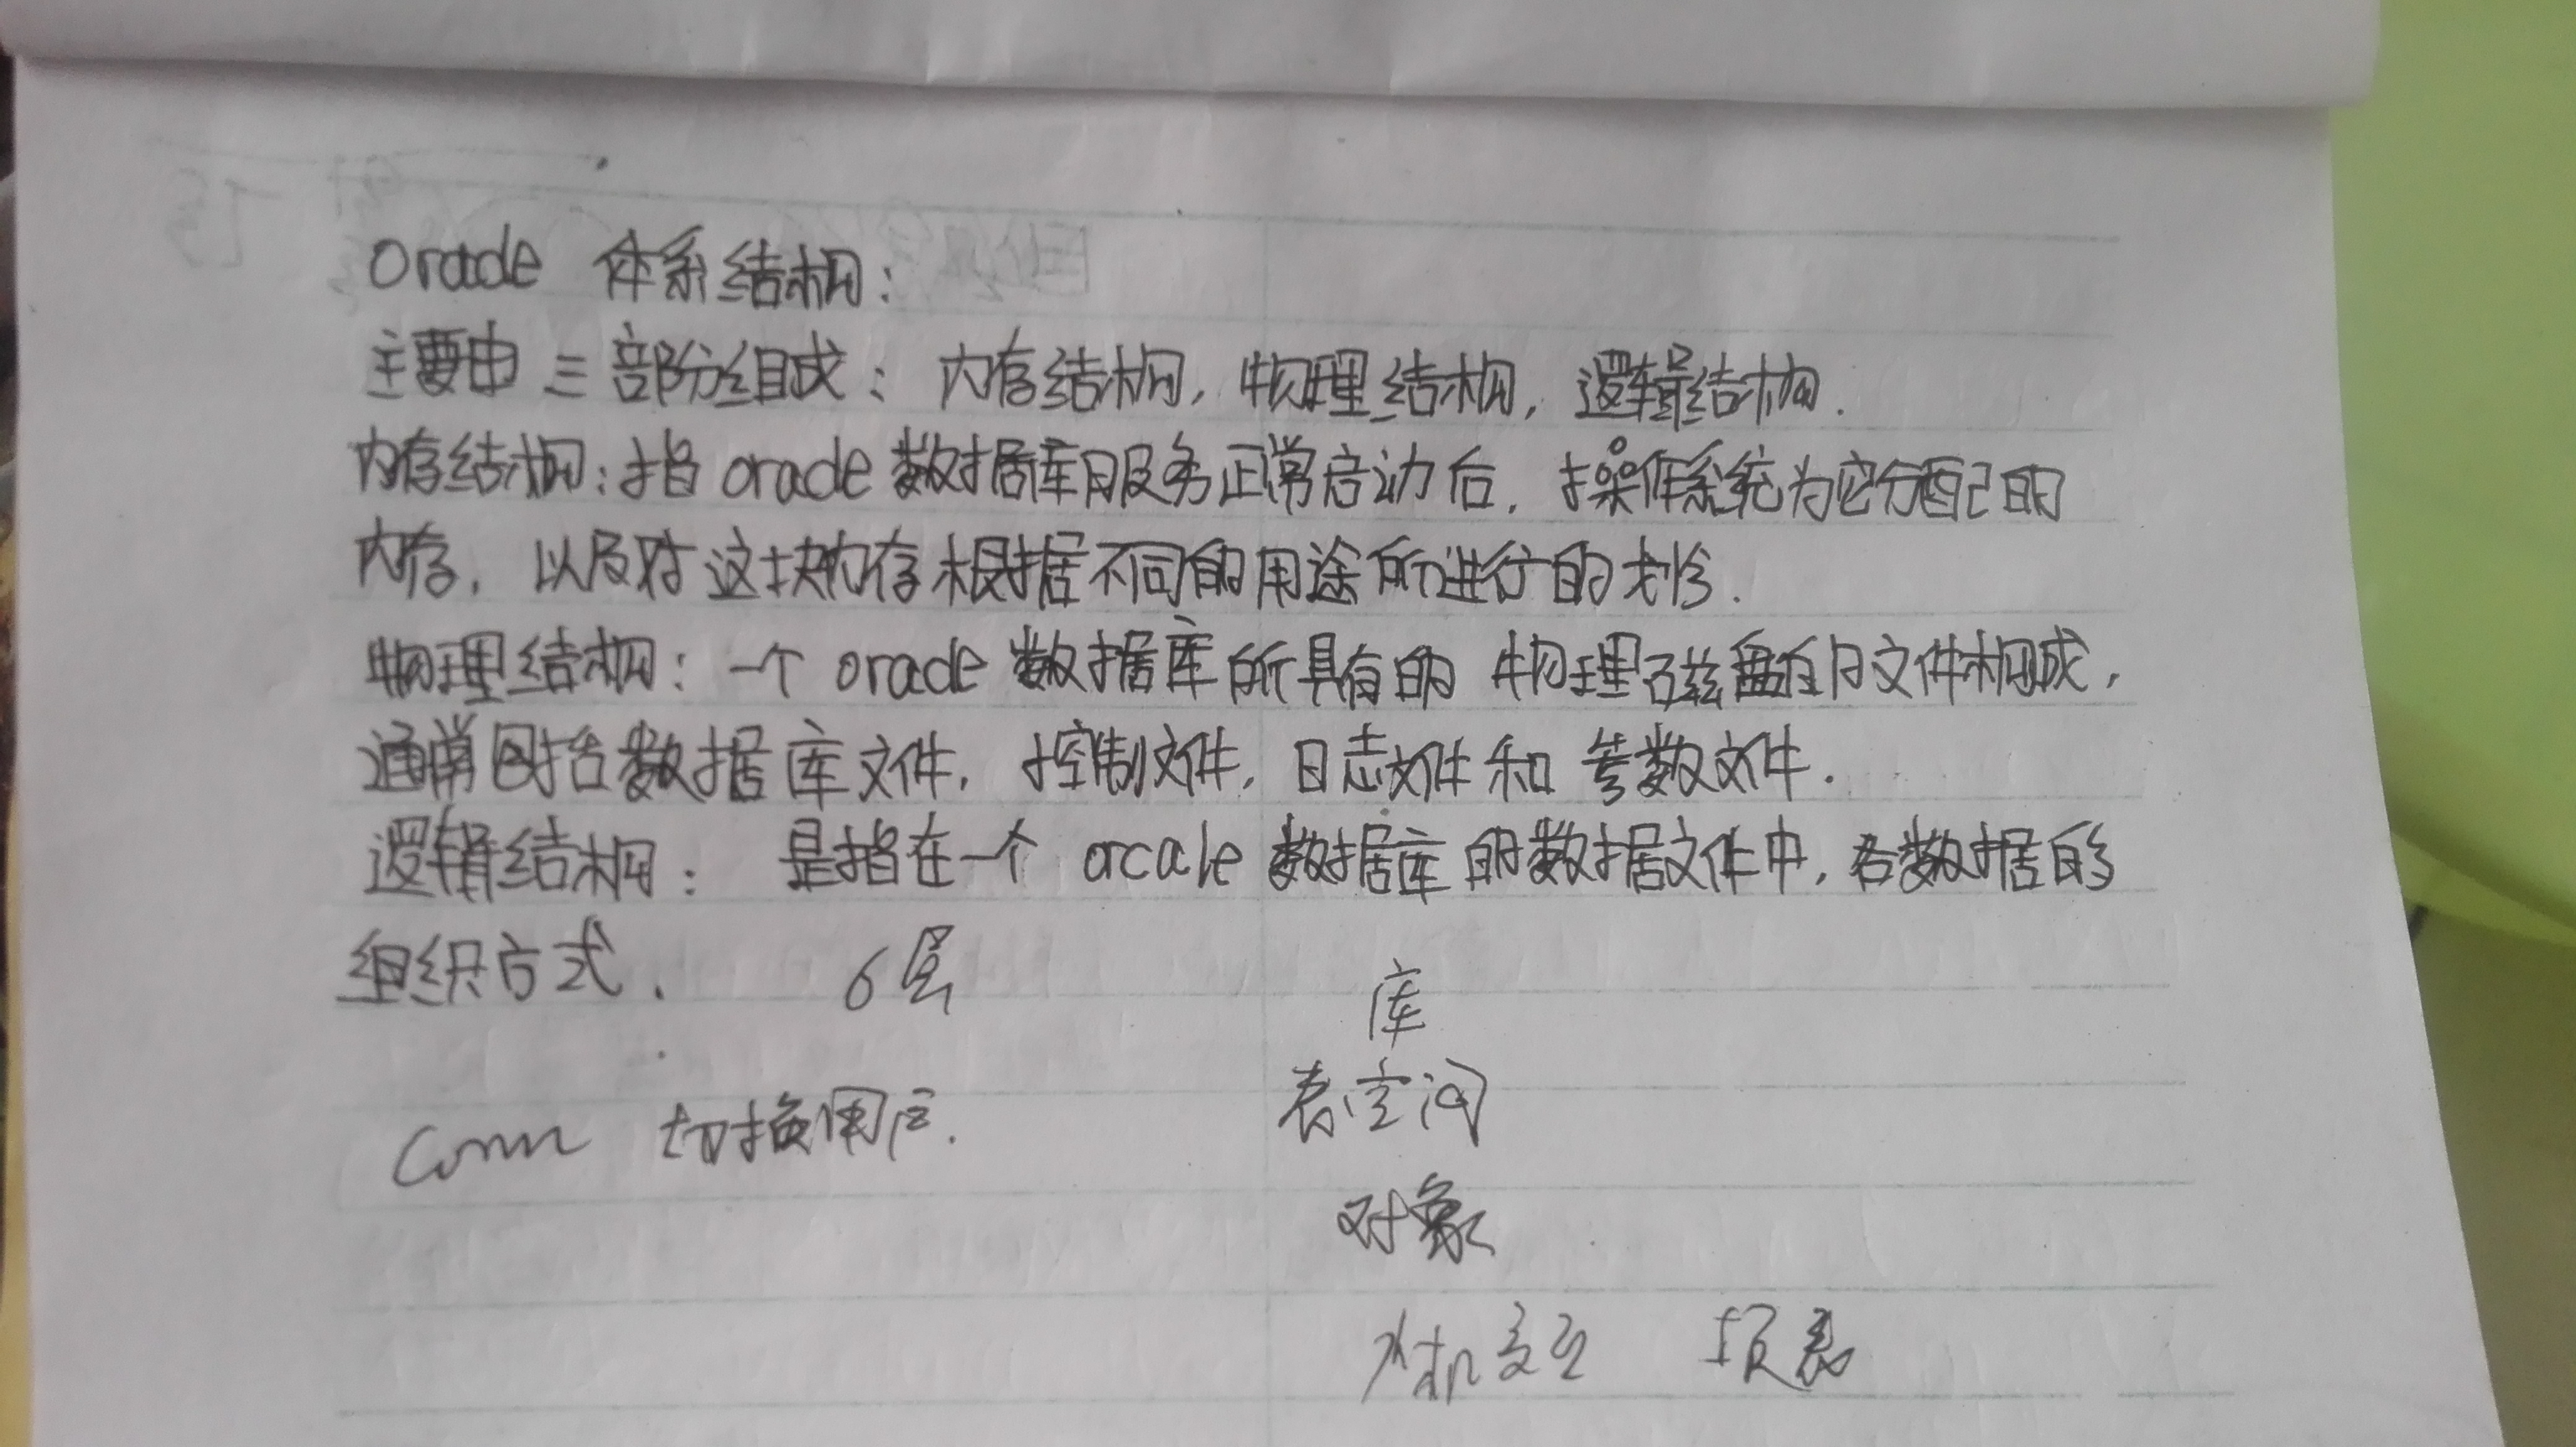 oracle 体系结构：
主要由三部份组成：内存结构，物理结构，逻辑结构．
内存结构：指 oracle 数据库服务正常启动后，操作系统为它分配的
内存，以及对这块内存根据不同的用途所进行的划分．
物理结构：一个 oracle 数据库所具有的 物理磁盘的文件构成，
通常包括数据库文件，控制文件，日志文件和 参数文件．
逻辑结构： 是指在一个 orcale 数据库的数据文件中，各数据的
组织方式． 6层
库
表空间
conn 切换用户．
对象
人机交互